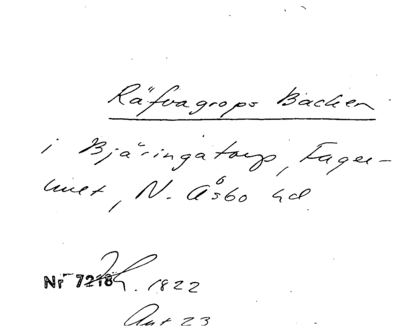 Räfvagrops Backen
i Bjäringatorp, Fager-
hult, N. Åsbo hd
Nr 7218 1822
Ant 23